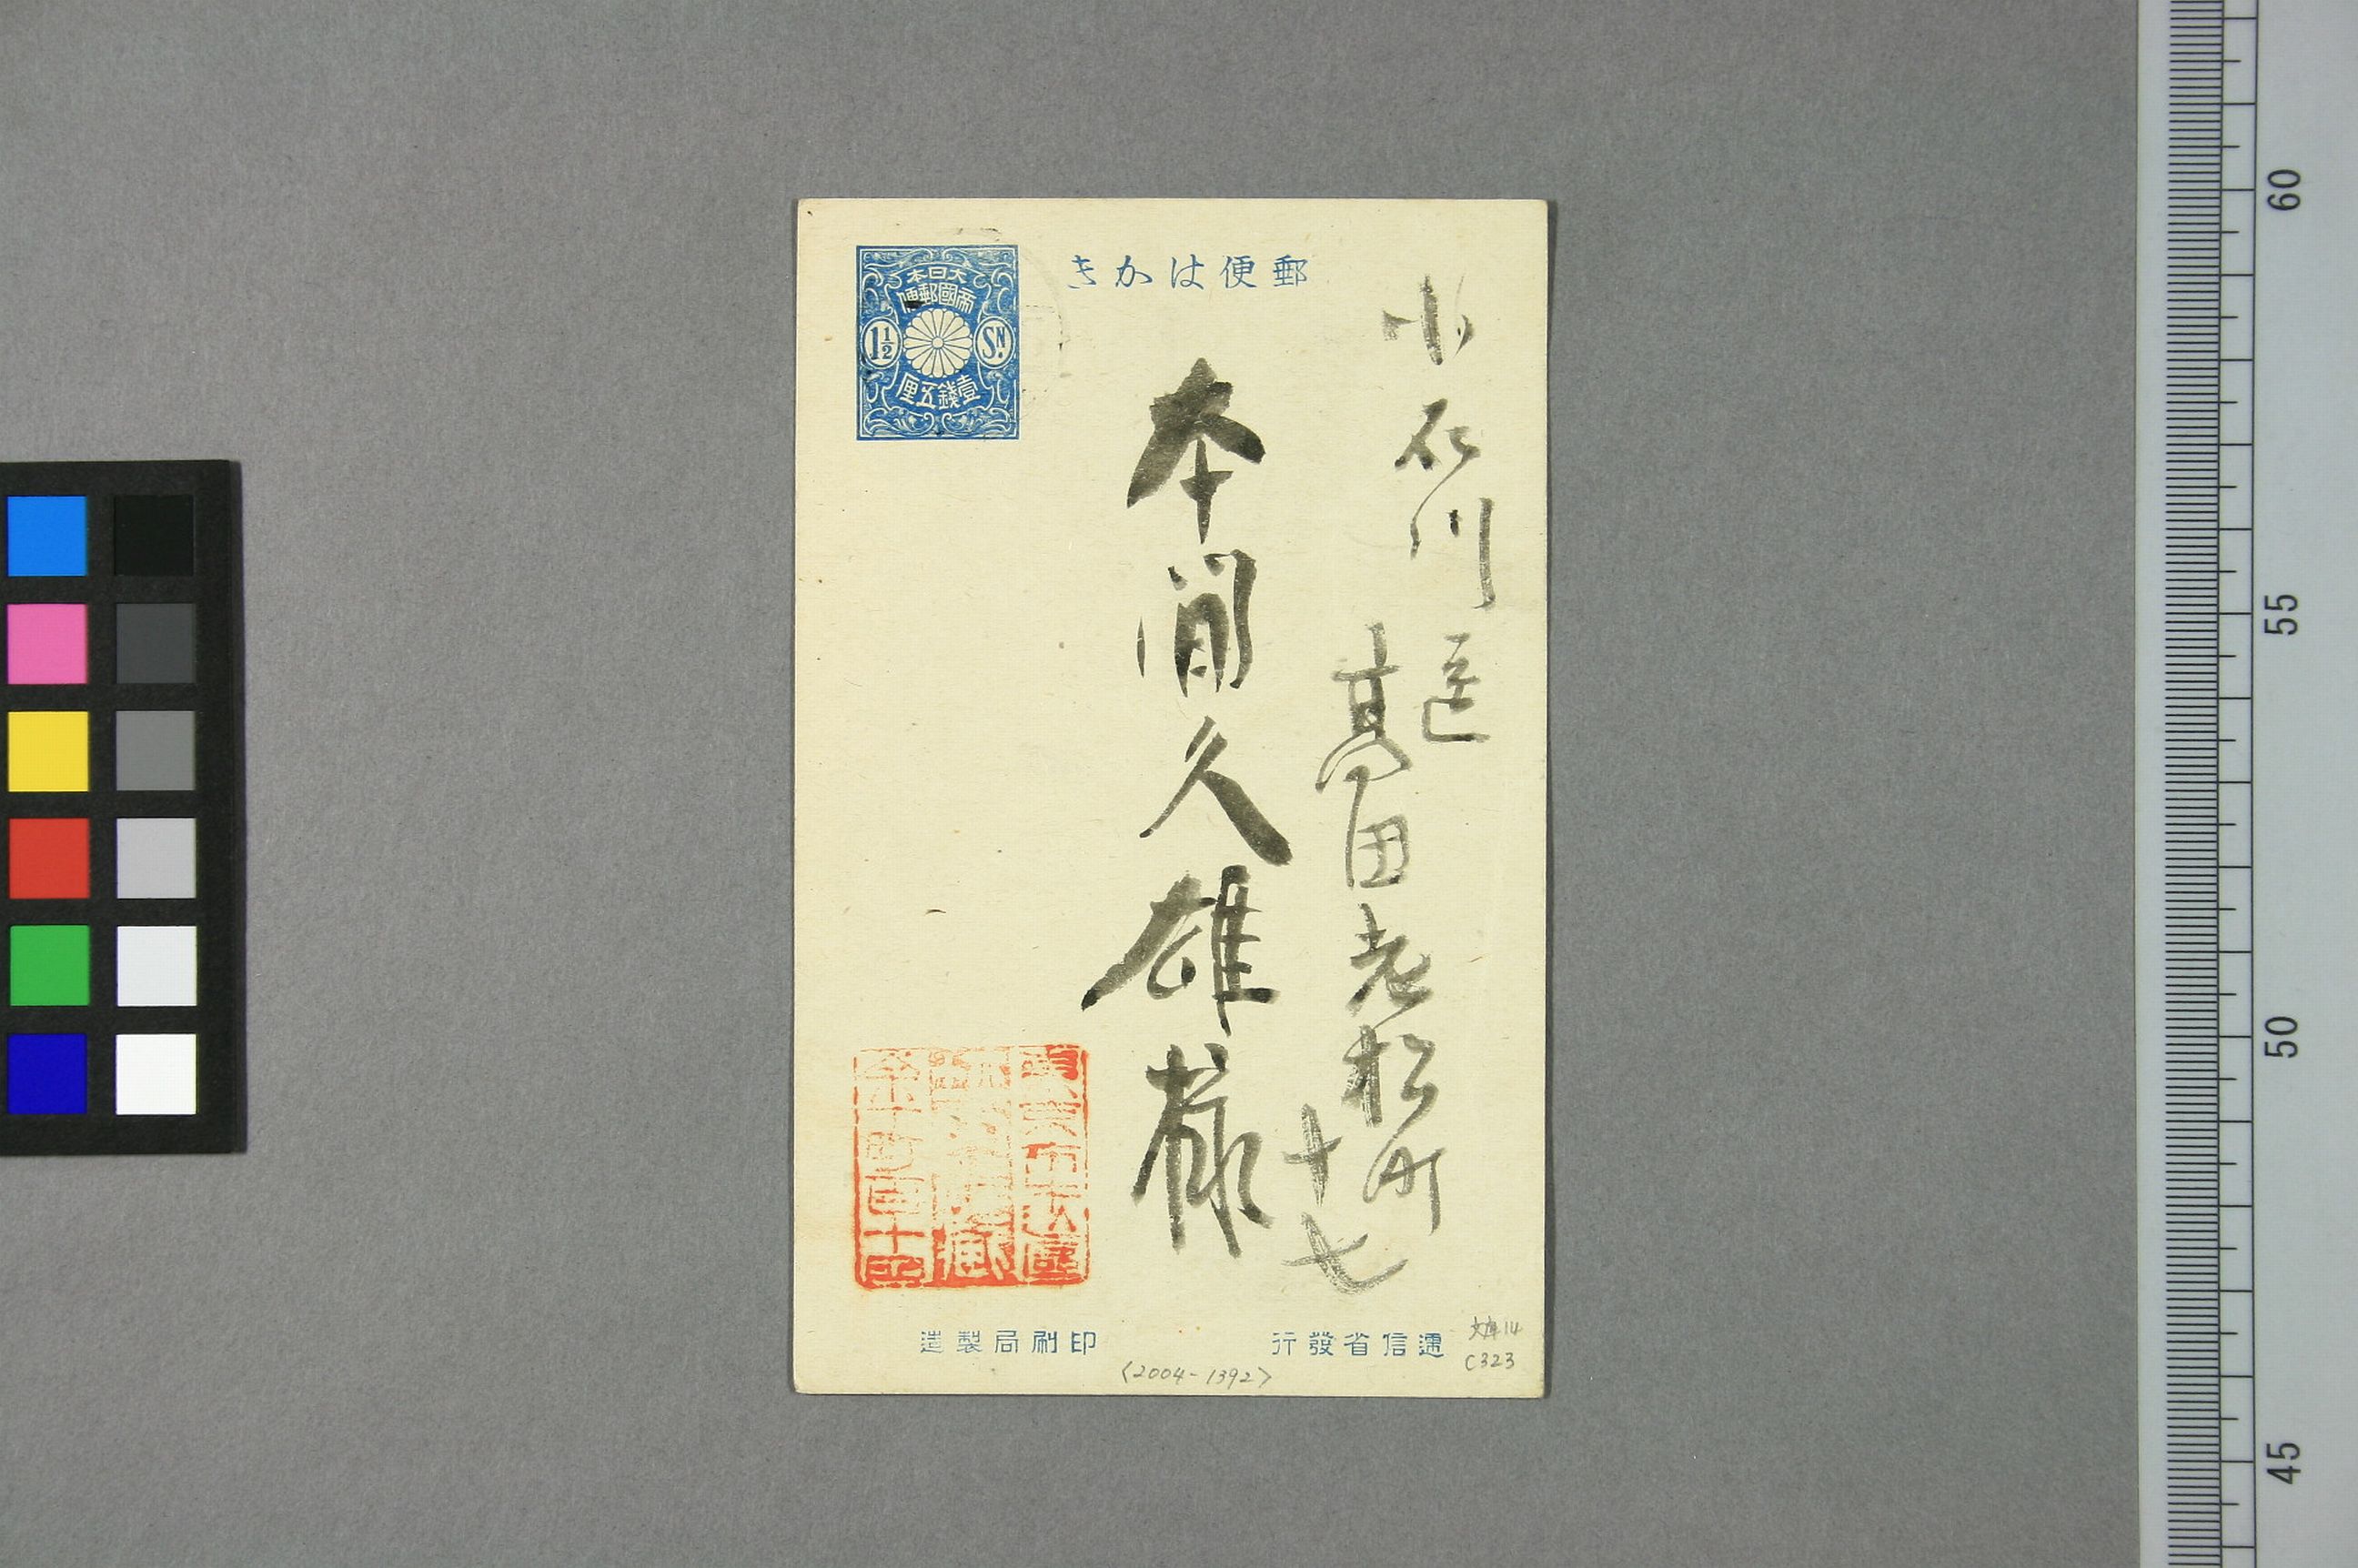 郵便はかき
大日本
帝國郵便
1½
SN.
壹錢五厘
小石川區
高田老松町
十七
本間久雄様
東京市
町百十
遞信省發行
印刷局製造
文庫14
C323
〈2004-1392〉
60
55
50
45